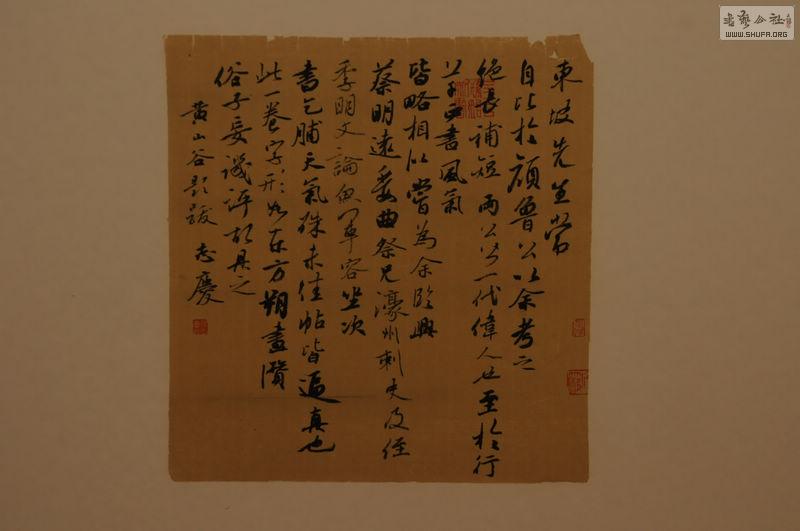 東坡先生嘗
自比於顔魯公以余考之
絶長補短兩公皆一代偉人也至於行
草正書風氣
皆略相似嘗為余臨與
蔡明遠委曲祭兄濠州刺史及侄
季明文論魚軍容坐次
書乞脯天氣殊未佳帖皆逼真也
此一卷字形如東方朔畫瓚
俗子妄譏評故具之
黄山谷題跋 志慶
書藝公社
WWW.SHUFA.ORG